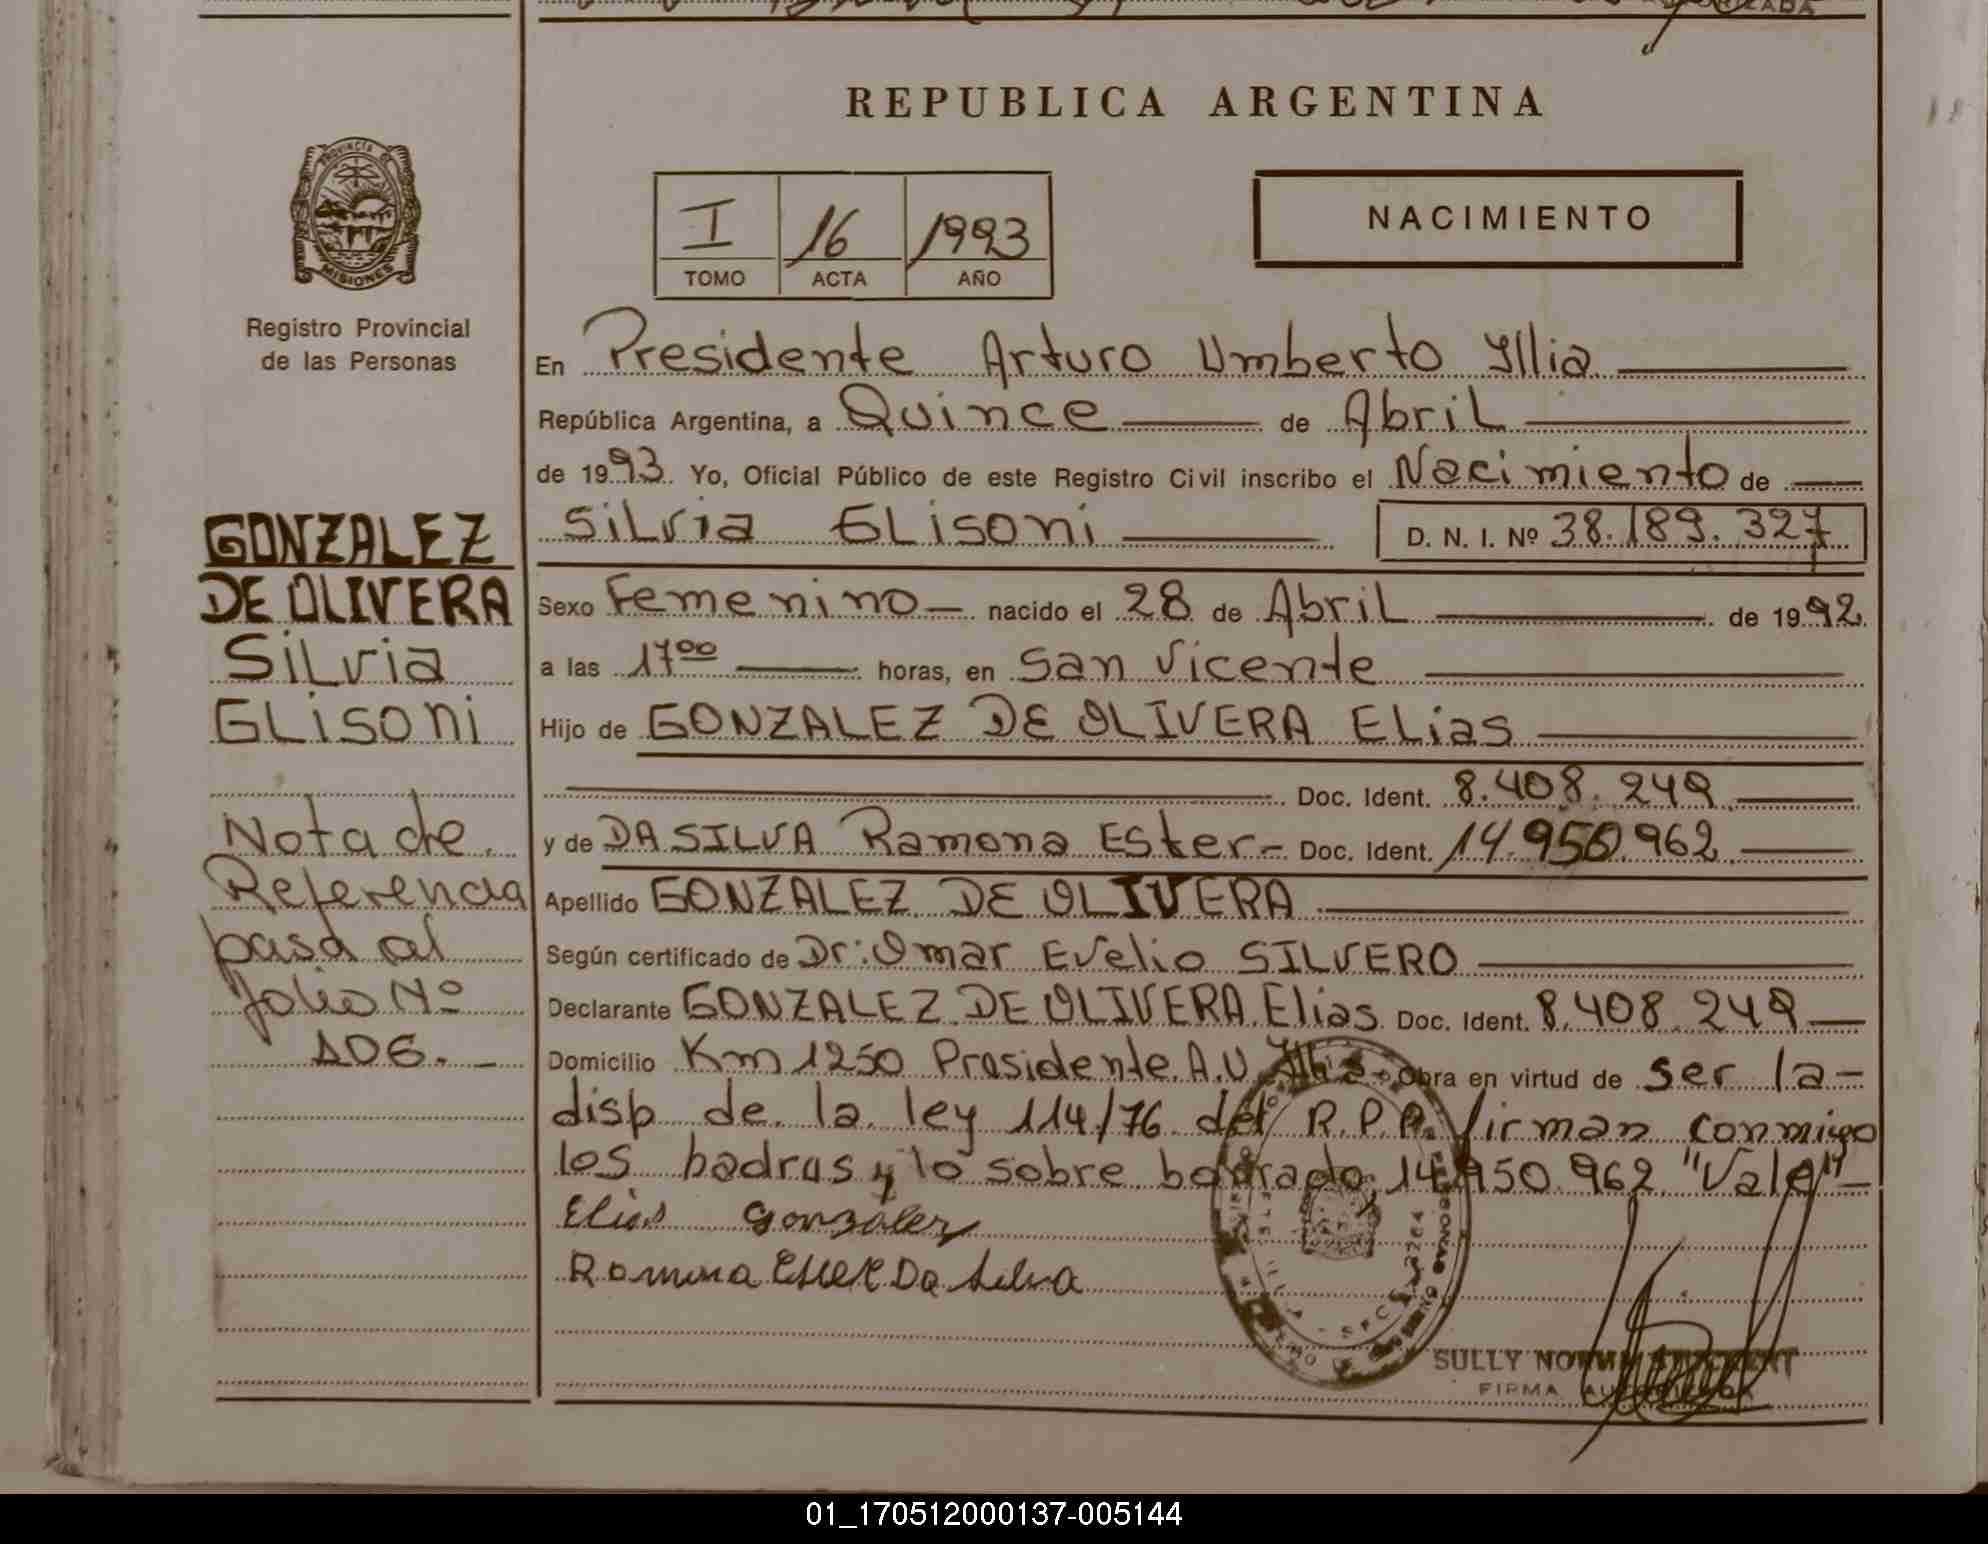 REPUBLICA ARGENTINA
PROVINCIA DE
MISIONES
Registro Provincial
de las Personas
I 16 1993
TOMO ACTA AÑO
NACIMIENTO
En Presidente Arturo Umberto Yllia
República Argentina, a Quince de Abril
de 1993. Yo, Oficial Público de este Registro Civil inscribo el Nacimiento de
Silvia Glisoni D. N. I. Nº 38.189.327
Sexo Femenino nacido el 28 de Abril de 1992
a las 17⁰⁰ horas, en San Vicente
Hijo de GONZALEZ DE OLIVERA Elias
Doc. Ident. 8.408.249
y de DA SILVA Ramona Ester- Doc. Ident. 14.950.962
Apellido GONZALEZ DE OLIVERA
Según certificado de Dr: Omar Evelio SILVERO
Declarante GONZALEZ DE OLIVERA Elias Doc. Ident. 8.408.249
Domicilio Km 1250 Presidente A.U. Obra en virtud de ser la-
disp de la ley 114/76 del R.P.P. firman conmigo
los padres y lo sobre borrado 14.950.962 "Vale"-
Elias Gonzalez
Ramona Ester Da Silva
SULLY
FIRMA AUTORIZADA
GONZALEZ
DE OLIVERA
Silvia
Glisoni
Nota de
Referencia
pasa al
folio Nº
106.-
01_170512000137-005144